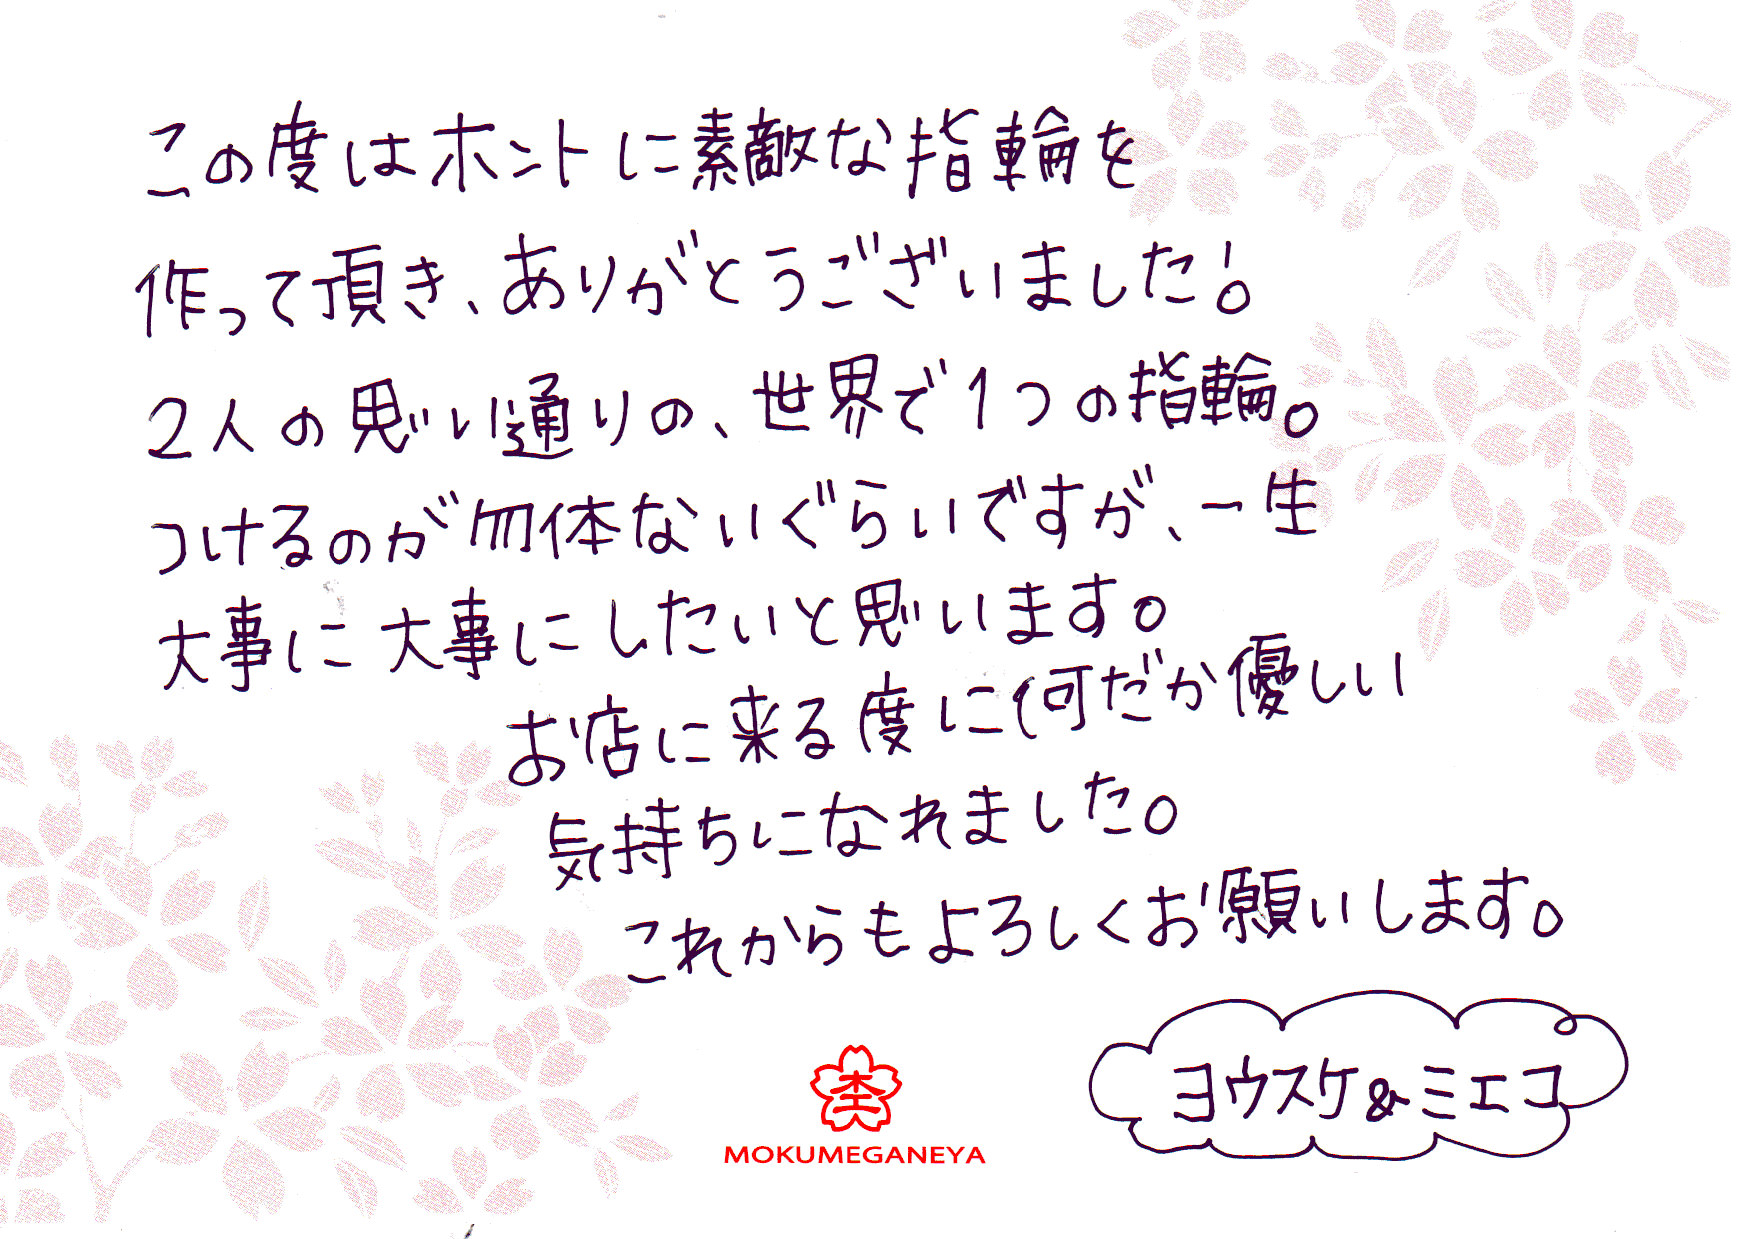 この度はホントに素敵な指輪を
作って頂き、ありがとうございました!
2人の思い通りの、世界で1つの指輪。
つけるのが勿体ないぐらいですが、一生
大事に大事にしたいと思います。
お店に来る度に何だか優しい
気持ちになれました。
これからもよろしくお願いします。
ヨウスケ&ミエコ
MOKUMEGANEYA